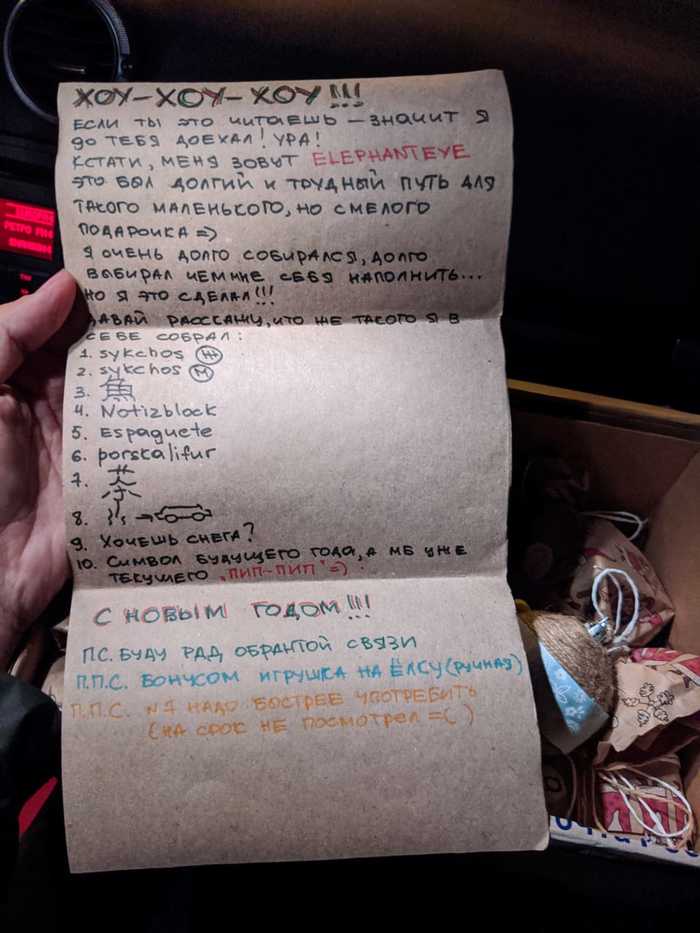 ХОУ-ХОУ-ХОУ!!!
ЕСЛИ ТЫ ЭТО ЧИТАЕШЬ — ЗНАЧИТ Я
ДО ТЕБЯ ДОЕХАЛ! УРА!
КСТАТИ, МЕНЯ ЗОВУТ ELEPHANTEYE
ЭТО БЫЛ ДОЛГИЙ И ТРУДНЫЙ ПУТЬ ДЛЯ
ТАКОГО МАЛЕНЬКОГО, НО СМЕЛОГО
ПОДАРОЧКА =)
Я ОЧЕНЬ ДОЛГО СОБИРАЛСЯ, ДОЛГО
ВЫБИРАЛ ЧЕМ МНЕ СЕБЯ НАПОЛНИТЬ...
НО Я ЭТО СДЕЛАЛ!!!
ДАВАЙ РАССКАЖУ, ЧТО ЖЕ ТАКОГО Я В
СЕБЕ СОБРАЛ:
1. sykchos Ж
2. sykchos М
3. 魚
4. Notizblock
5. Espaguete
6. porskalifur
7. 茶
8.
9. ХОЧЕШЬ СНЕГА?
10. СИМВОЛ БУДУЩЕГО ГОДА, А МБ УЖЕ
ТЕКУЩЕГО "ПИП-ПИП" =)
С НОВЫМ ГОДОМ!!!
П.С. БУДУ РАД ОБРАНТОЙ СВЯЗИ
П.П.С. БОНУСОМ ИГРУШКА НА ЁЛКУ (РУЧНАЯ)
П.П.С. №7 НАДО БЫСТРЕЕ УПОТРЕБИТЬ
(НА СРОК НЕ ПОСМОТРЕЛ =( )